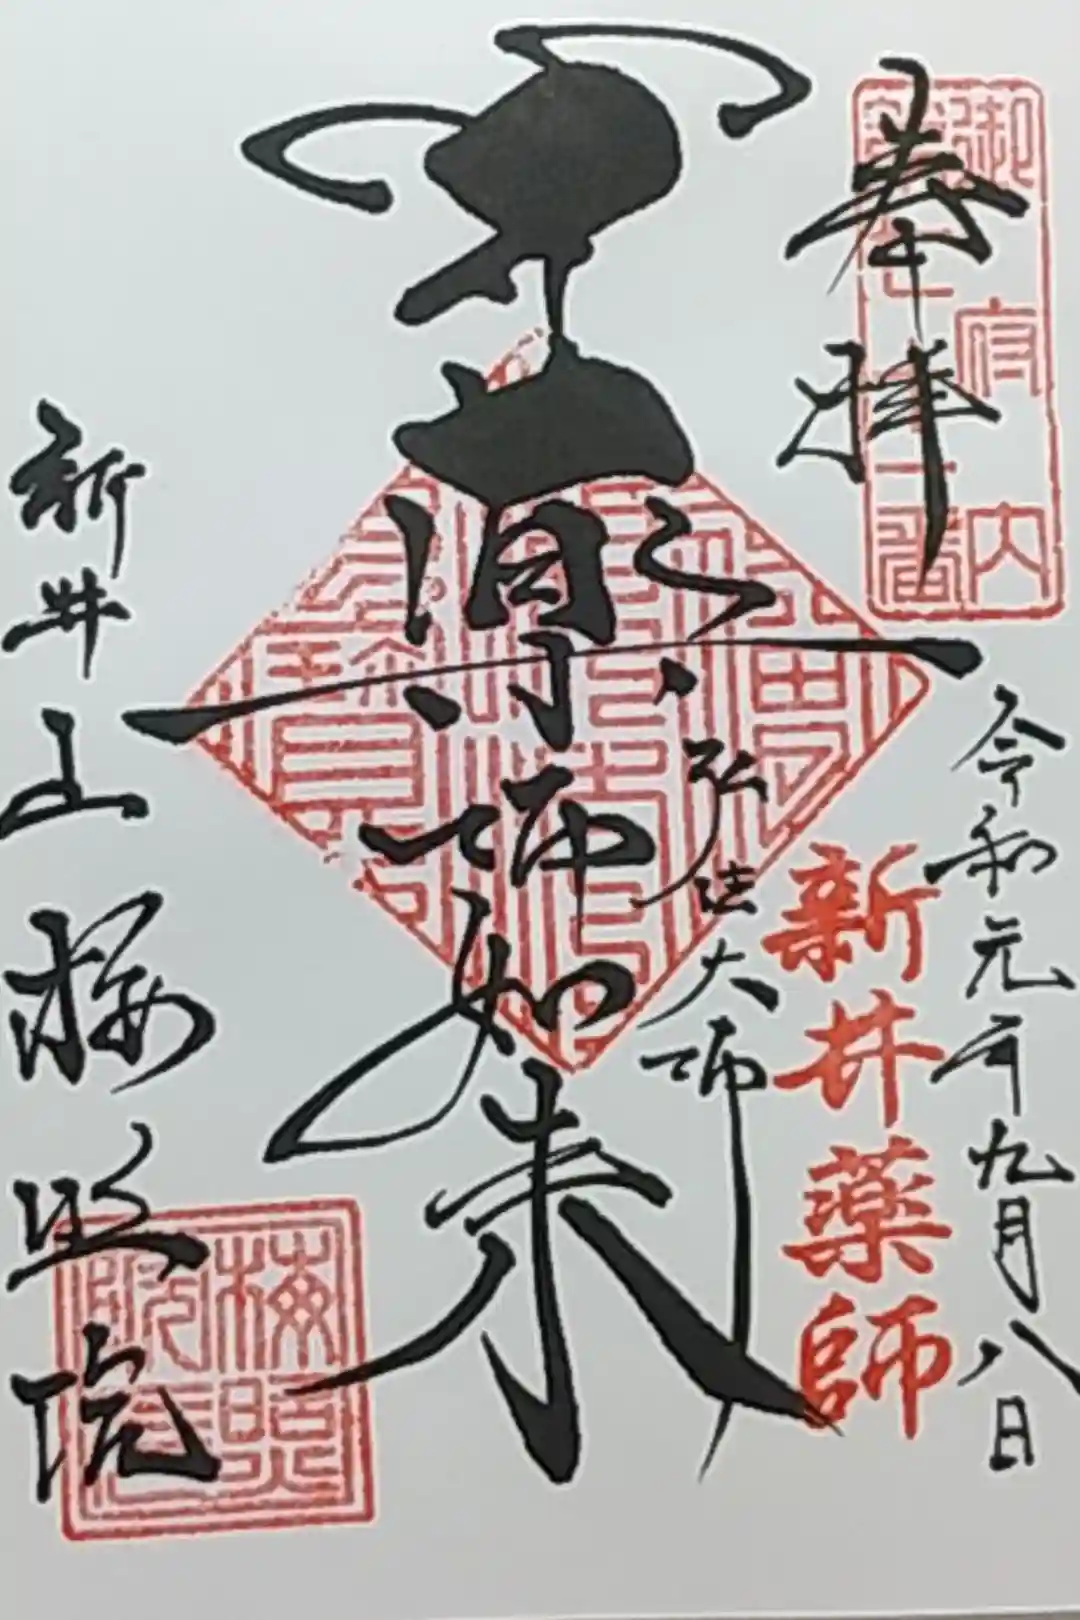 奉拝
御府内
第七十一番
令和元年九月八日
新井薬師
弘法大師
薬師如来
新井山梅照院
梅照